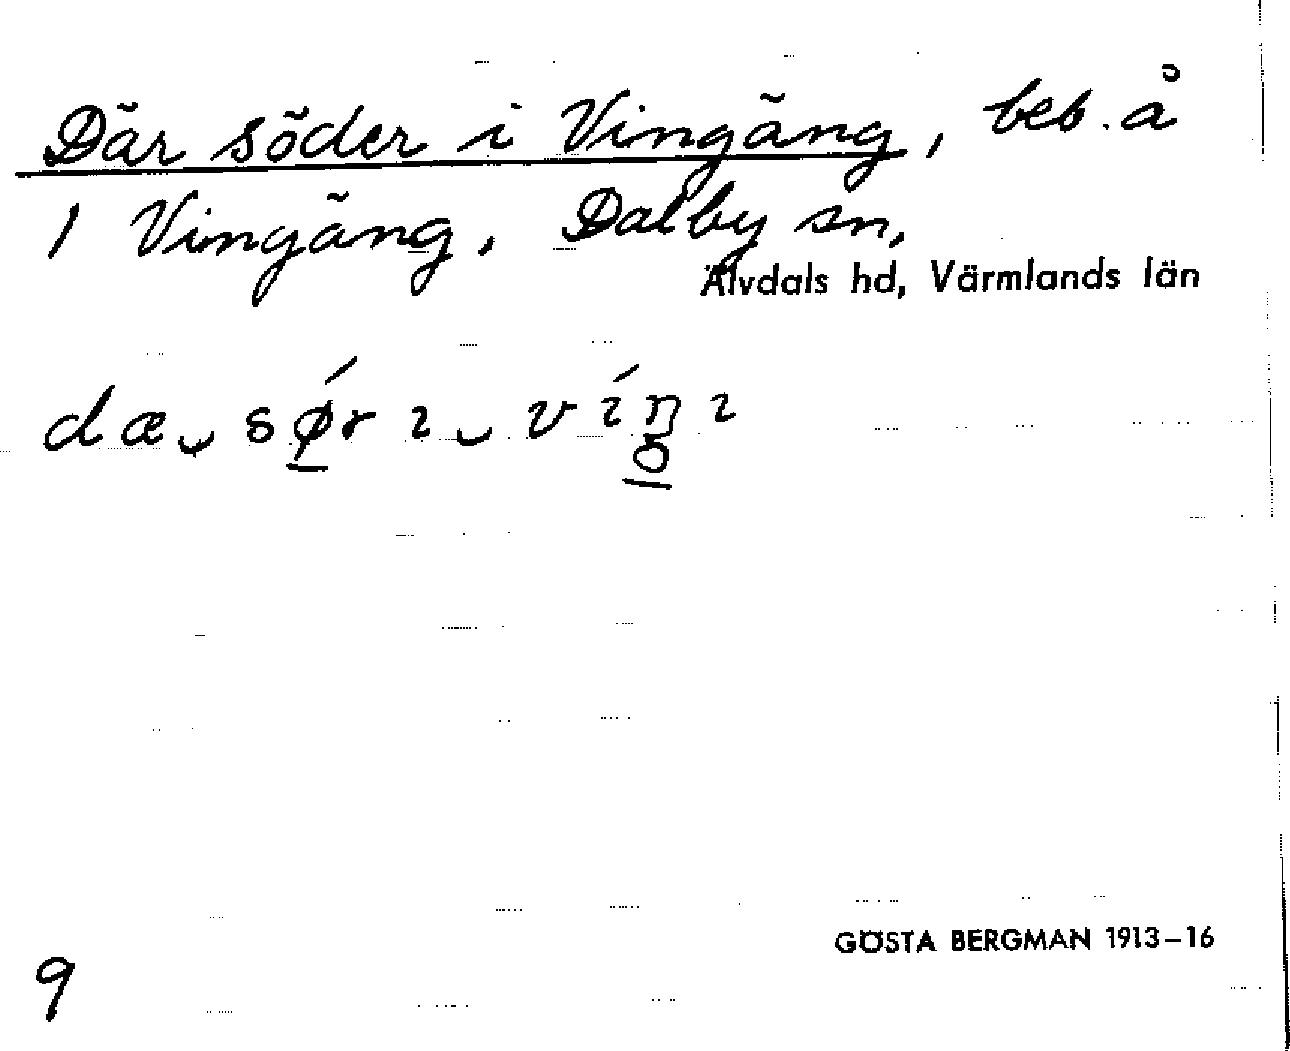 Där söder i Vingäng, beb. å
1 Vingäng, Dalby sn,
Älvdals hd, Värmlands län
dæ‿sǿr ı‿víŋı
GÖSTA BERGMAN 1913–16
9